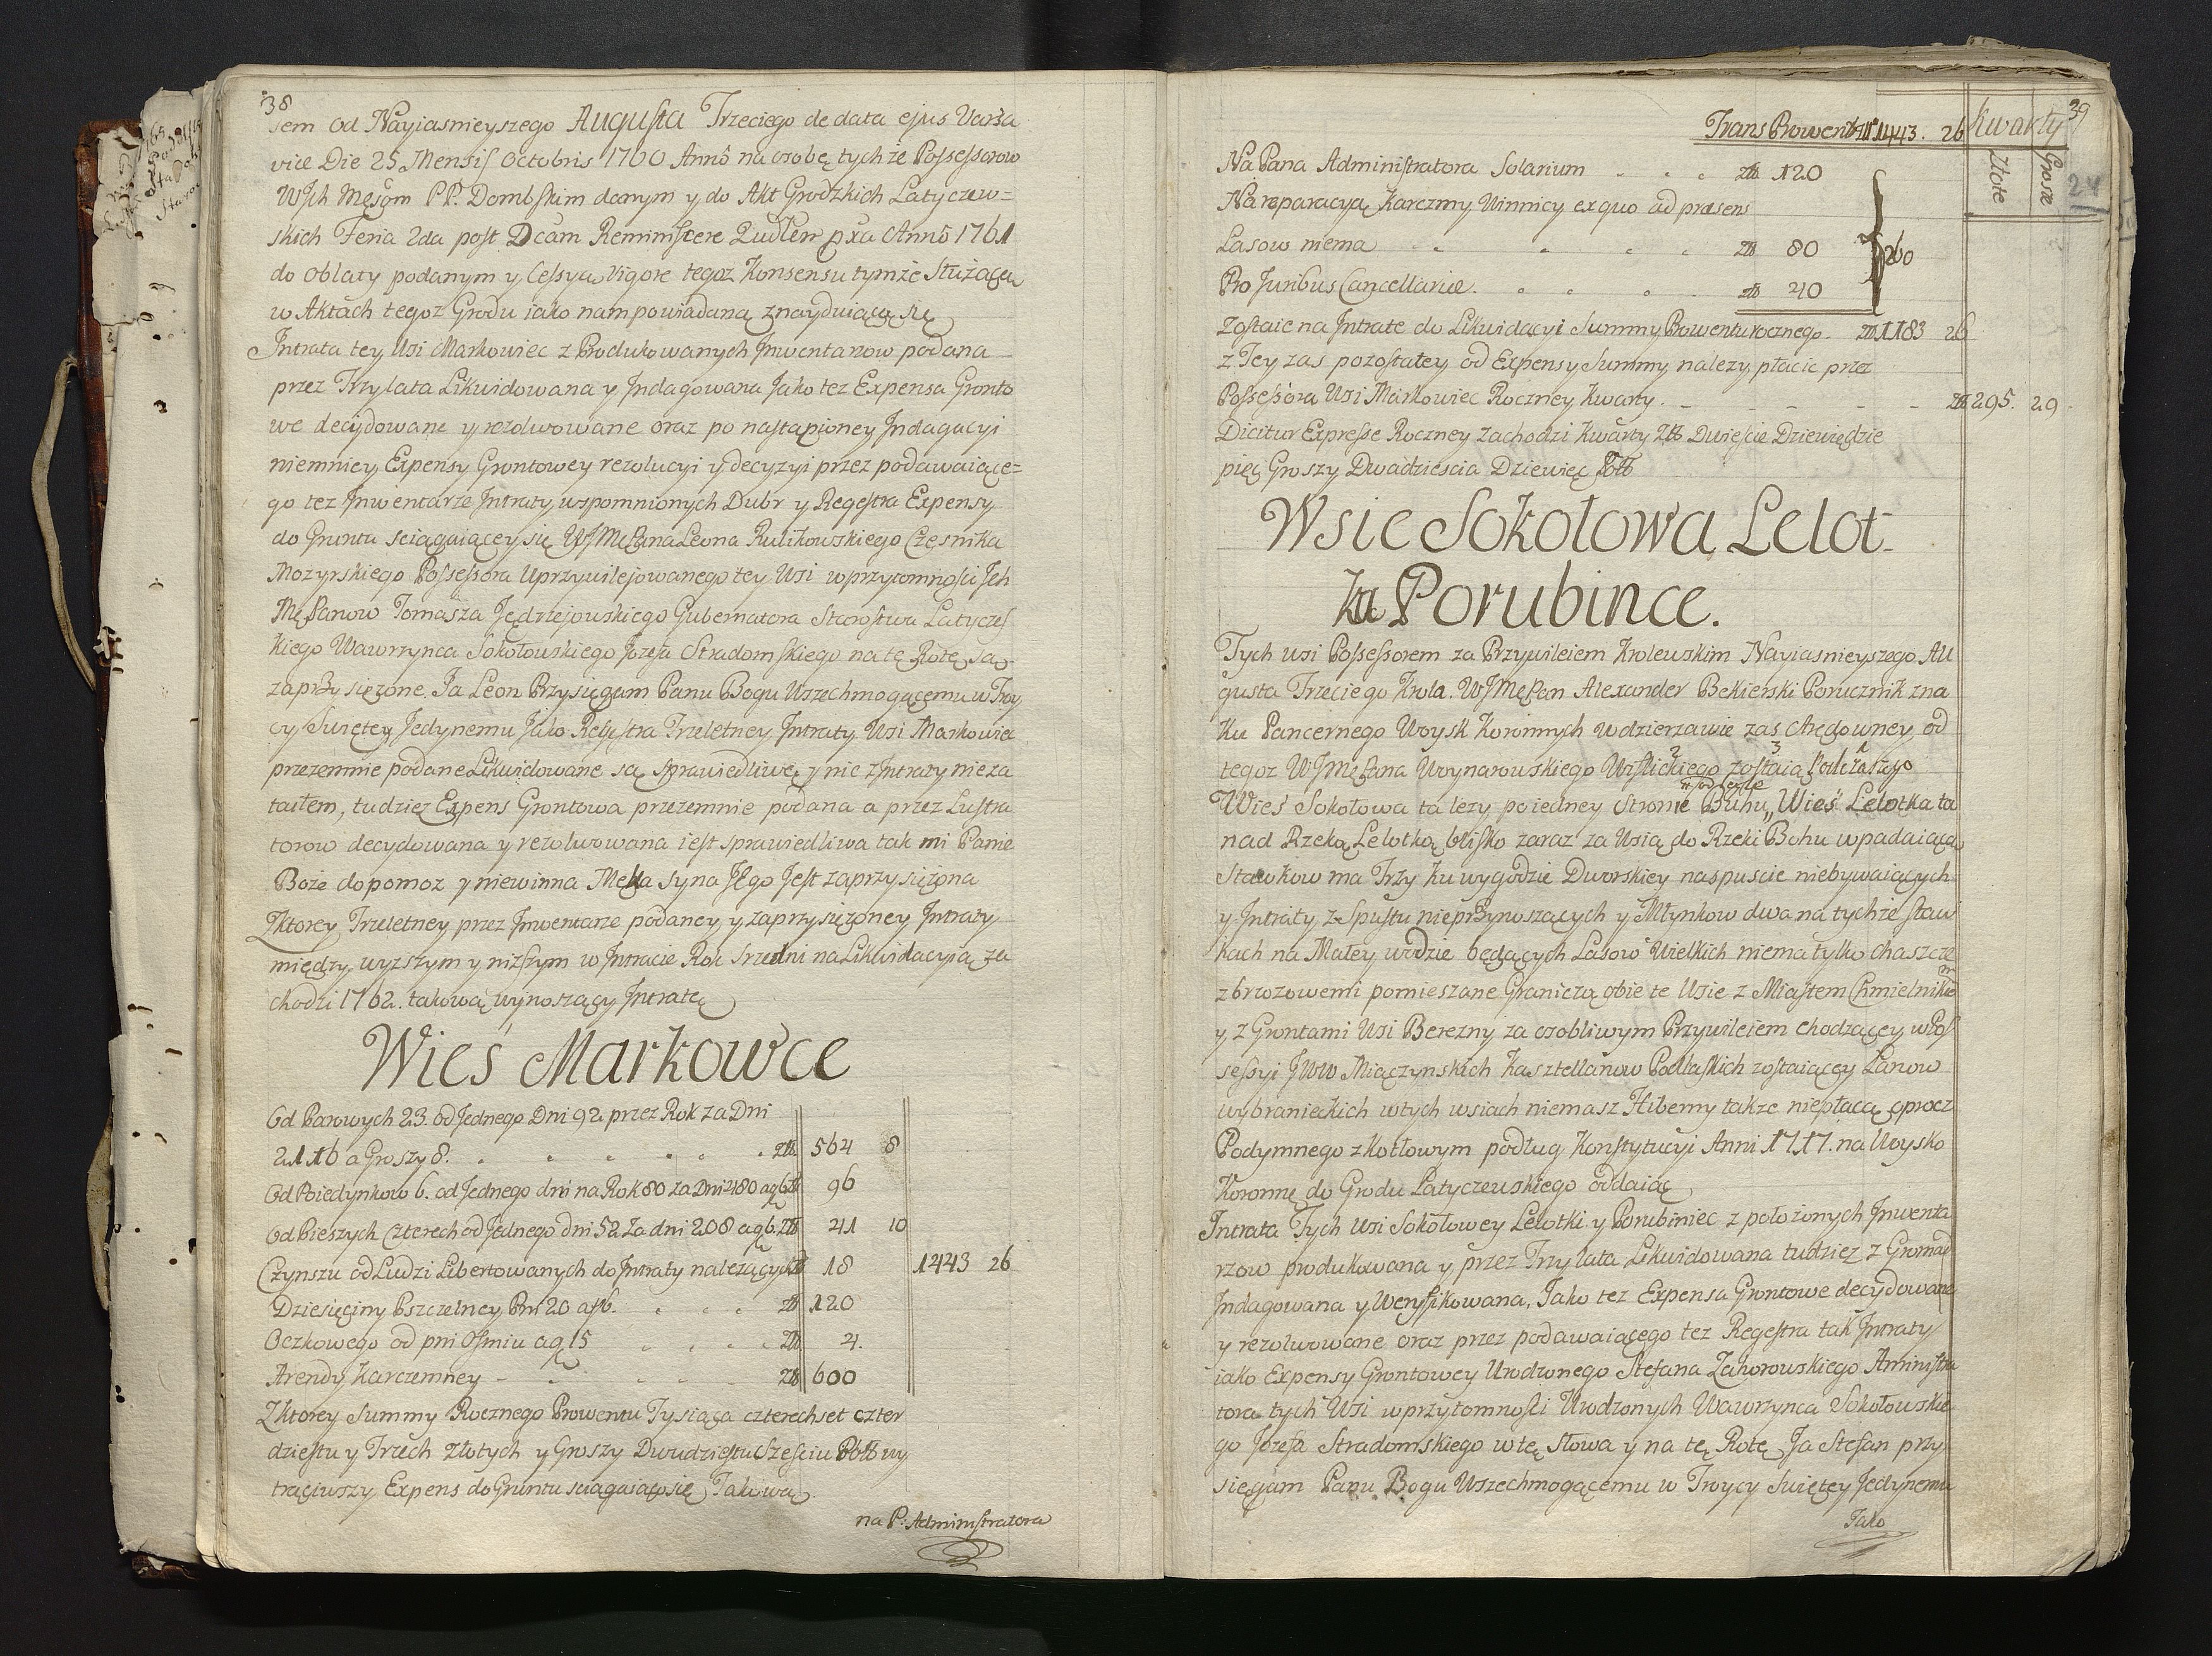 38
sem od Nayiasnieyszego Augusta Trzeciego de data ejus Varsa
viæ Die 25. Mensis Octobris 1760 Annô na osobę tychże Possessorow
WJch Męsgm PP. Dombskim danym y do Akt Grodzkich Latyczew=
skich Feria 2da post Dcam Reminiscere Quadlem pxa Annô 1761
do oblaty podanym y Cessyą Vigore tegoz Konsensu tymże Służącą
w Aktach tegoz Grodu iako nam powiadaną znayduiącą się
Intrata tey Wsi Markowiec z Produkowanych Inwentarzow podana
przez Trzy lata Likwidowana y Indagowana Jako tez Expensa Gronto
we decydowane y rezolwowane oraz po nastąpioney Indagacyi
niemniey Expensy Grontowey rezolucyi y decyzyi przez podawaiące=
go tez Inwentarze Intraty wspomnionych Dobr y Regestra Expensy
do Gruntu sciągaiącey się WJMę Pana Leona Rulikowskiego Częsnika
Mozyrskiego Possessora Uprzywilejowanego tey Wsi w przytomnosci Jch
Mę Panow Tomasza Jędrzejowskiego Gubernatora Starostwa Latyczes
kiego Wawrzynca Sokołowskiego Jozefa Stradomskiego na tę Rotę są
zaprzysięzone. Ja Leon Przysięgam Panu Bogu Wszechmogącemu w Troy
cy Swiętey Jedynemu Jako Regestra Trzeletney Intraty Wsi Markowiec
przezemnie podane Likwidowane są sprawiedliwe y nic z Intraty nieza
taiłem, tudziez Expens Grontowa przezemnie podana a przez Lustra
torow decydowana y rezolwowana iest sprawiedliwa tak mi Panie
Boże dopomoz y niewinna Męka syna JEgo Jest zaprzysięzona
Zktorey Trzeletney przez Inwentarze podaney y zaprzysięzoney Intraty
między wyzszym y nizszym w Intracie Rok Srzedni na Likwidacyią za
chodzi 1762. takową wynoszący Intratę
Wieś Markowce
Od Parowych 23. od Jednego Dni 92 przez Rok za Dni
2116 a Groszy 8. zł 564 8
Od Poiedynkow 6. od Jednego dni na Rok 80 za Dni 480 a g 6 zł 96
Od Pieszych Czterech od Jednego dni 52 za dni 208 a g 6. zł 41 10
Czynszu od Ludzi Libertowanych do Intraty nalezących zł 18 1443 26
Dziesięciny Pszczelney Pni 20 a f 6. zł 120
Oczkowego od pni Osmiu a g 15 zł 4.
Arendy Karczemney zł 600
Zktorey Summy Rocznego Prowentu Tysiąca czterechset czter
dziestu y Trzech złotych y Groszy Dwudziestu Szesciu Polł wy
trąciwszy Expens do Gruntu sciągaiąc się Takową
na P: Administratora
39
Trans Prowent zł 1443. 26 Kwarty
Złote Grosze
24
Na Pana Administratora Solarium zł 120
Na reparacyą Karczmy Winnicy ex quo ad præsens
Lasow niema zł 80 260
Pro Juribus Cancellariæ zł 40
Zostaie na Intratę do Likwidacyi Summy Prowentu rocznego zł 1183 26
z Tey zas pozostałey od Expensy Summy nalezy płacic przez
Possessora Wsi Markowiec Roczney Kwarty zł 295. 29
Dicitur Expresse Roczney zachodzi Kwarty Zł Dwieście Dziewiędzie
pięć Groszy Dwadziescia Dziewięć Polł
Wsie Sokołowa Lelot-
ka Porubince.
Tych wsi Possessorem za Przywileiem Krolewskim Nayiasnieyszego Au
gusta Trzeciego Krola. WJMę Pan Alexander Bekierski Porucznik zna
ku Pancernego Woysk Koronnych w dzierzawie zas Arędowney od
tegoz WJMę Pana Woynarowskiego Wislickiego 2 zostaią 3 Podczaszego 1
Wieś Sokołowa ta lezy po iedney stronie Bohu, Wieś Lelotka ta
nad Rzeką Lelotką blisko zaraz za Wsią do Rzeki Bohu wpadaiącą
Stawkow ma Trzy Ku wygodzie Dworskiey na spuscie niebywaiących
y Intraty z Spustu nieprzynoszących y Młynkow dwa na tychże staw
kach na Małey wodzie będących Lasow Wielkich niema tylko chaszcze
z brzozowemi pomieszane Graniczą obie te Wsie z Miastem Chmielnikiem
y z Grontami Wsi Berezny za osobliwym Przywileiem chodzącey w Pos
sessyi JWW Miączynskich Kasztellanow Podlaskich zostaiącey Łanow
wybranieckich w tych wsiach niemasz Hiberny takze niepłacą oprocz
Podymnego z Kotłowym podług Konstytucyi Anni 1717. na Woysko
Koronne do Grodu Latyczewskiego oddaiąc
Intrata Tych Wsi Sokołowey Lelotki y Porubiniec z położonych Inwenta
rzow produkowana y przez Trzy lata Likwidowana tudziez z Gromad
Indagowana y Weryfikowana, Jako tez Expensa Grontowe decydowane
y rezolwowane oraz przez podawaiącego tez Regestra tak Intraty
iako Expensy Grontowey Urodzonego Stefana Zahorowskiego Aministra
tora tych Wsi w przytomnosci Urodzonych Wawrzynca Sokołowskie
go Jozefa Stradomskiego w tę słowa y na tę Rotę Ja Stefan przy
sięgam Panu Bogu Wszechmogącemu w Troycy Swiętey Jedynemu
Jako